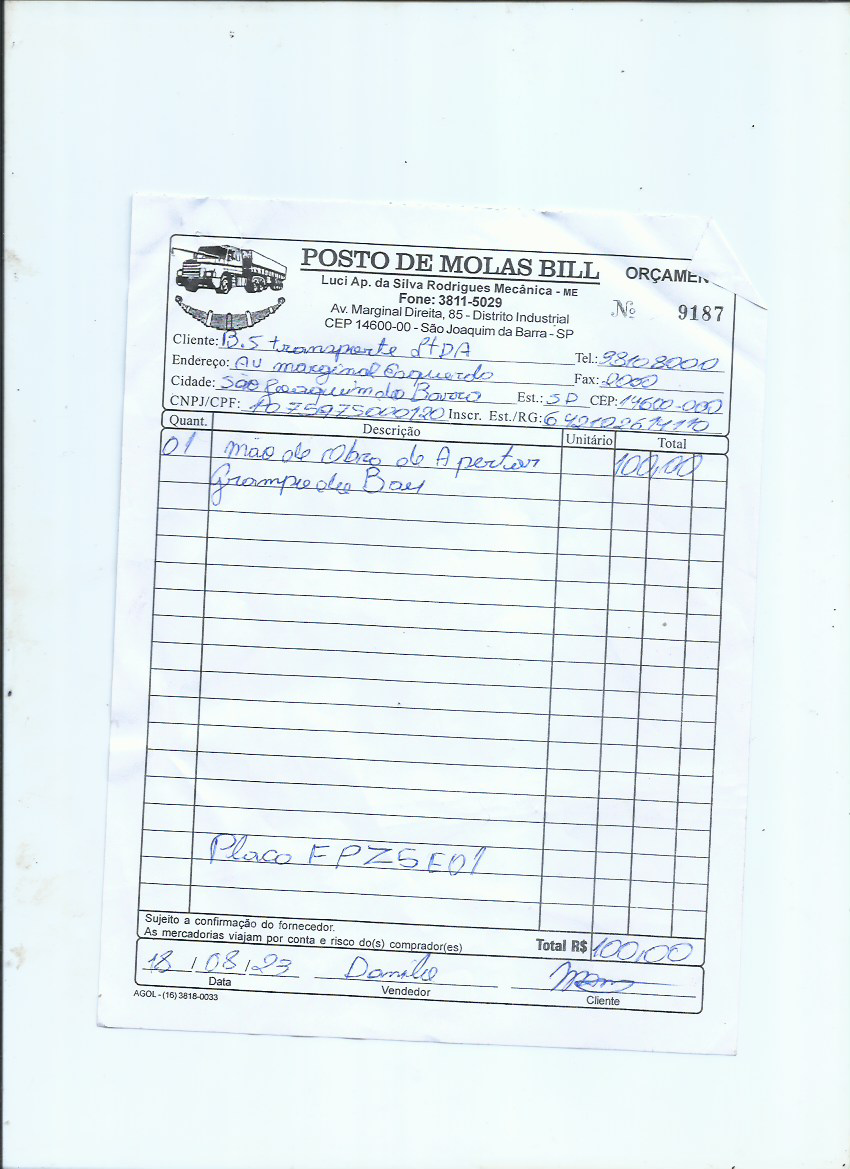 POSTO DE MOLAS BILL ORÇAMEN
Luci Ap. da Silva Rodrigues Mecânica - ME
Fone: 3811-5029
Av. Marginal Direita, 85 - Distrito Industrial
CEP 14600-00 - São Joaquim da Barra - SP
Nº 9187
Cliente: B.S transporte LtDA Tel.: 98108000
Endereço: Av marginal Esquerdo Fax: 0000
Cidade: São Joaquim da Barra Est.: SP CEP: 14600-000
CNPJ/CPF: Inscr. Est./RG:
Quant. Descrição Unitário Total
01 mão de Obra de Apertar 100,00
Grampo do Bau
Placa FPZ5E01
Sujeito a confirmação do fornecedor.
As mercadorias viajam por conta e risco do(s) comprador(es)
Total R$ 100,00
18 / 08 / 23 Danilo
Data Vendedor Cliente
AGOL - (16) 3818-0033